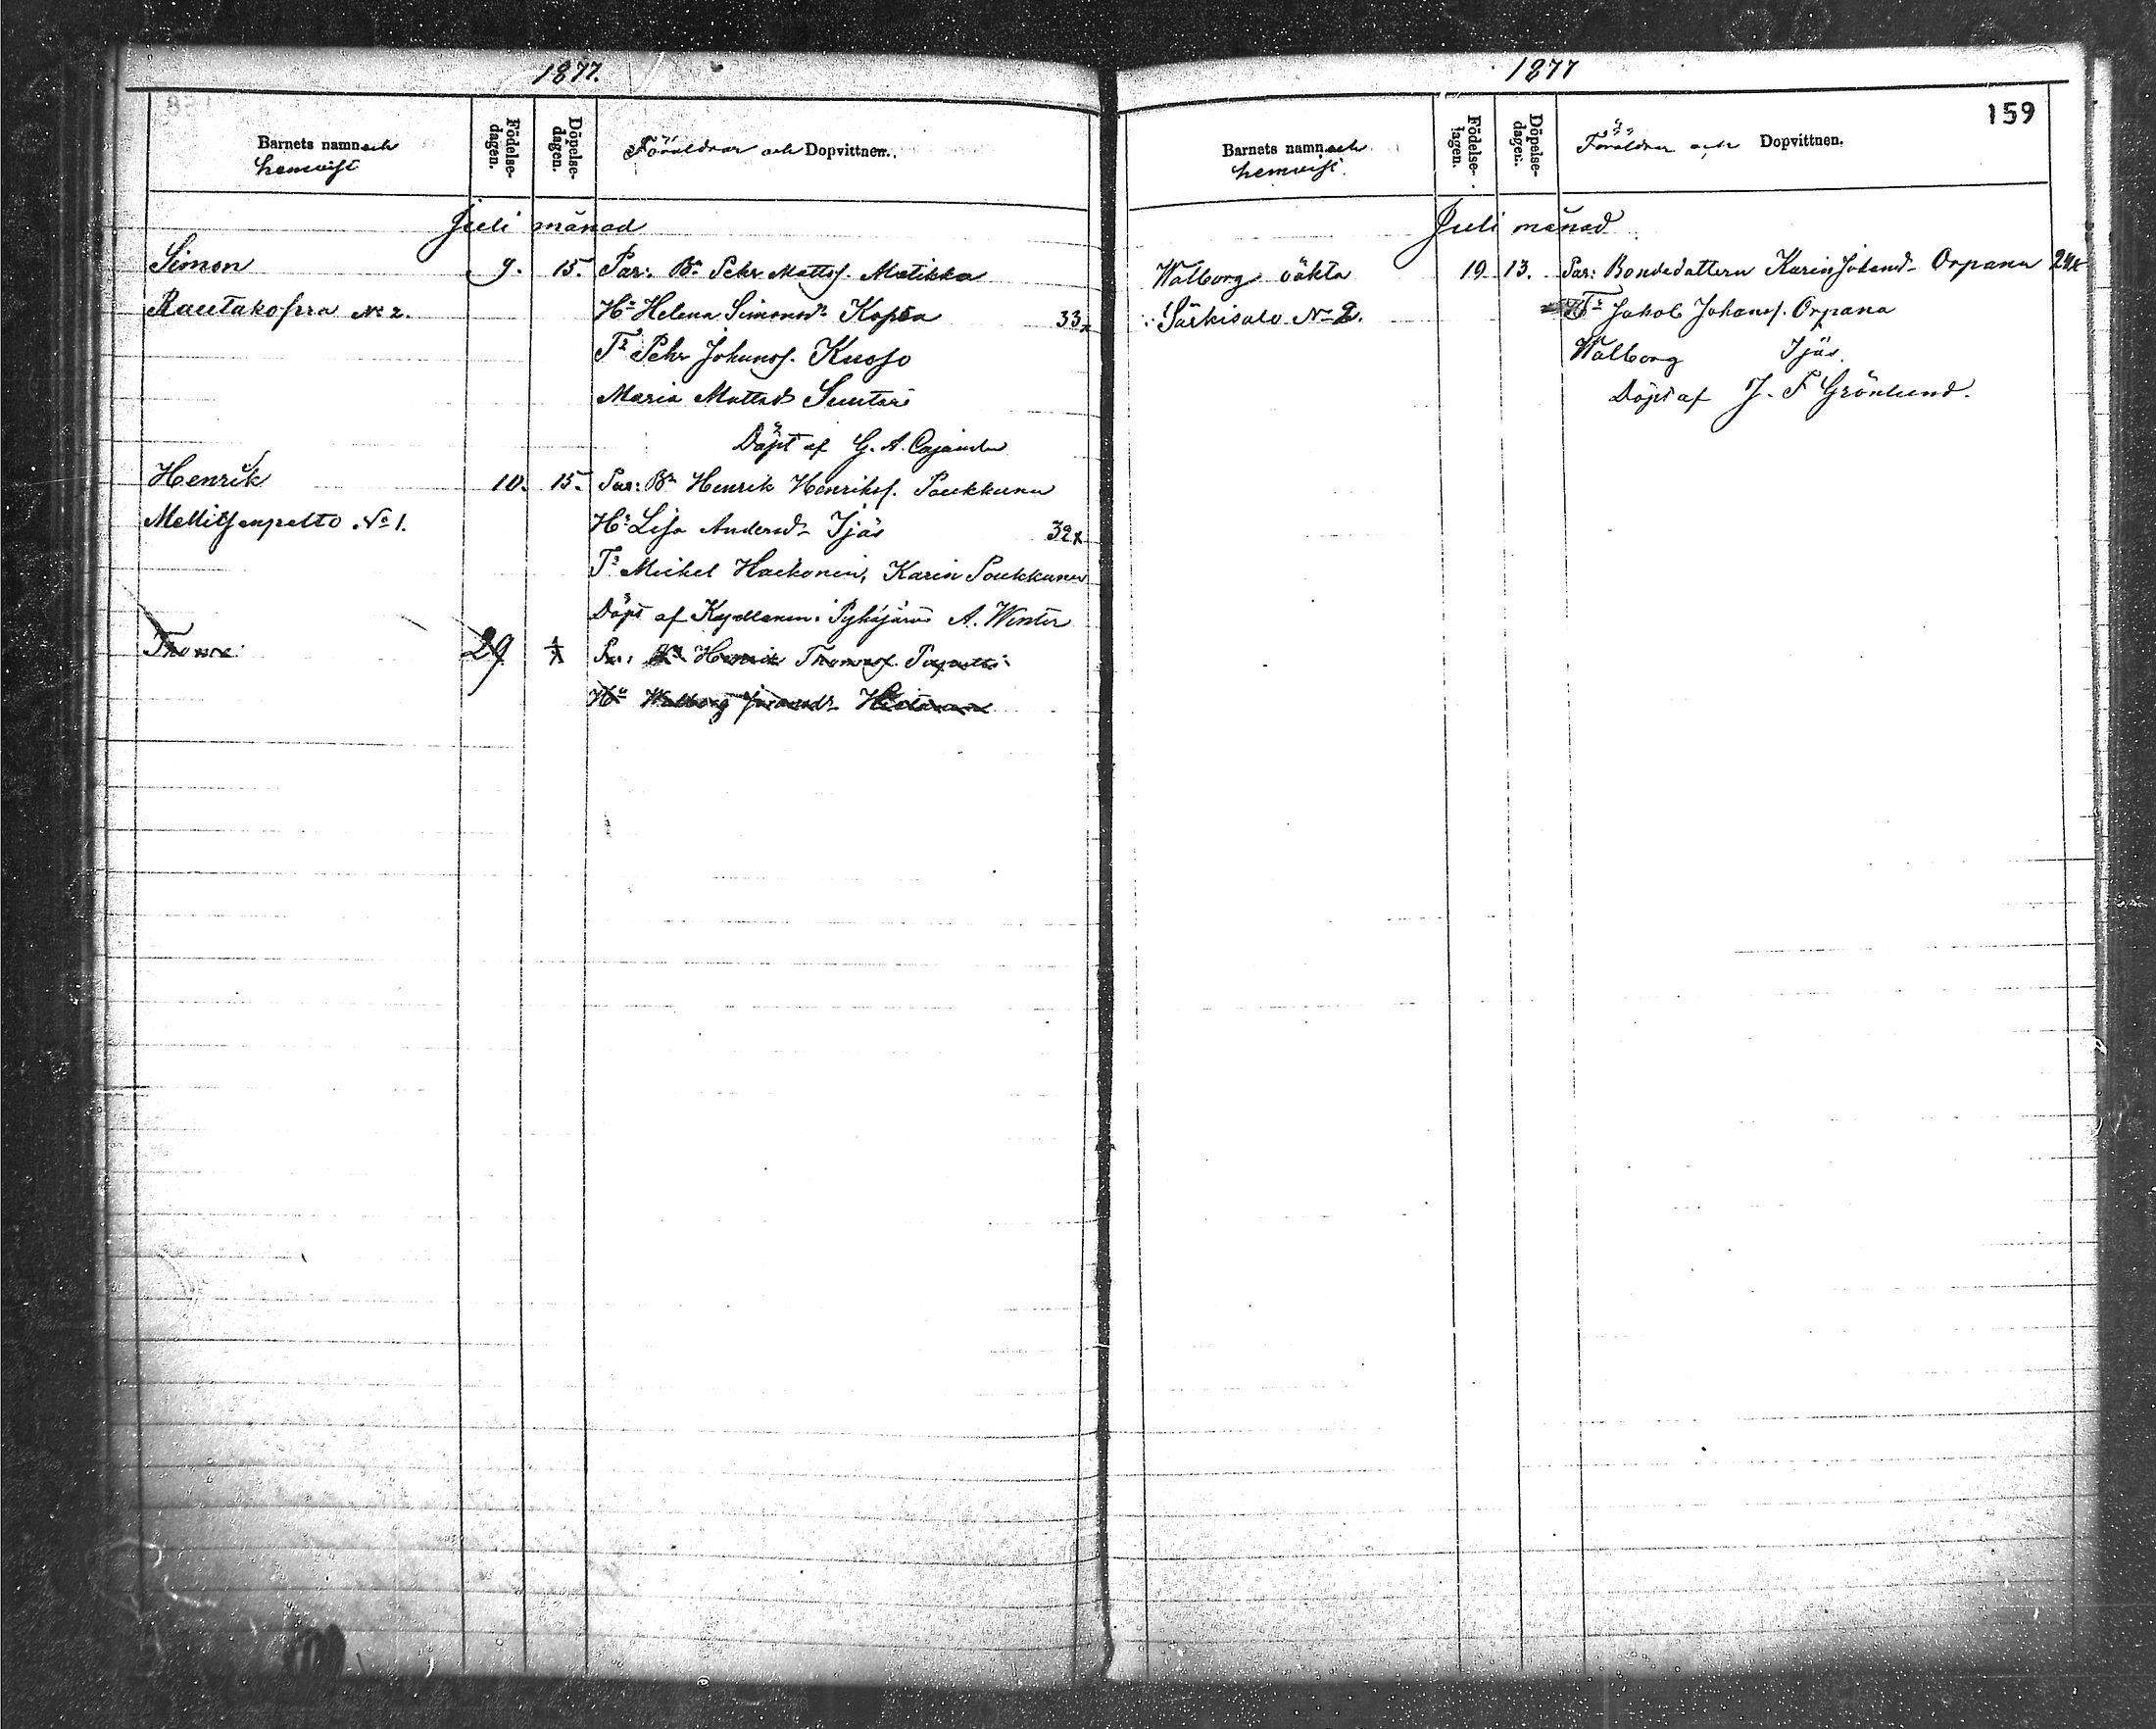 1877.
Barnets namn och
hemvist
Födelse-
dagen.
Döpelse-
dagen.
Föräldrar och Dopvittnen.
Juli månad
Simon 9. 15. Par: Bn Pehr Mattss. Matikka
Rautakopra No 2. Hu Helena Simonsdr Kopsa 33
Tr Pehr Johanss. Kuoso
Maria Mattsdr Suutari
Döpt af G. A. Cajander
Henrik 10. 15. Par: Bn Henrik Henrikss. Paukkunu
Mellitsenpelto No 1. Hu Lisa Andersdr Ijäs 32
Tr Mickel Haikonen, Karin Paukkunu
Döpt af Kapellanen i Pyhäjärvi A. Winter
Thomas 29 Par: Bn Henrik Thomass.
Hu Walborg
1877
159
Barnets namn och
hemvist.
Födelse-
dagen.
Döpelse-
dagen.
Föräldrar och Dopvittnen.
Juli månad
Walborg oäkta 19 13. Par: Bondedottern Karin Johansdr Orpana 24
Särkisalo No 2. Tr Jakob Johanss. Orpana
Walborg Ijäs
Döpt af J. F Grönlund.